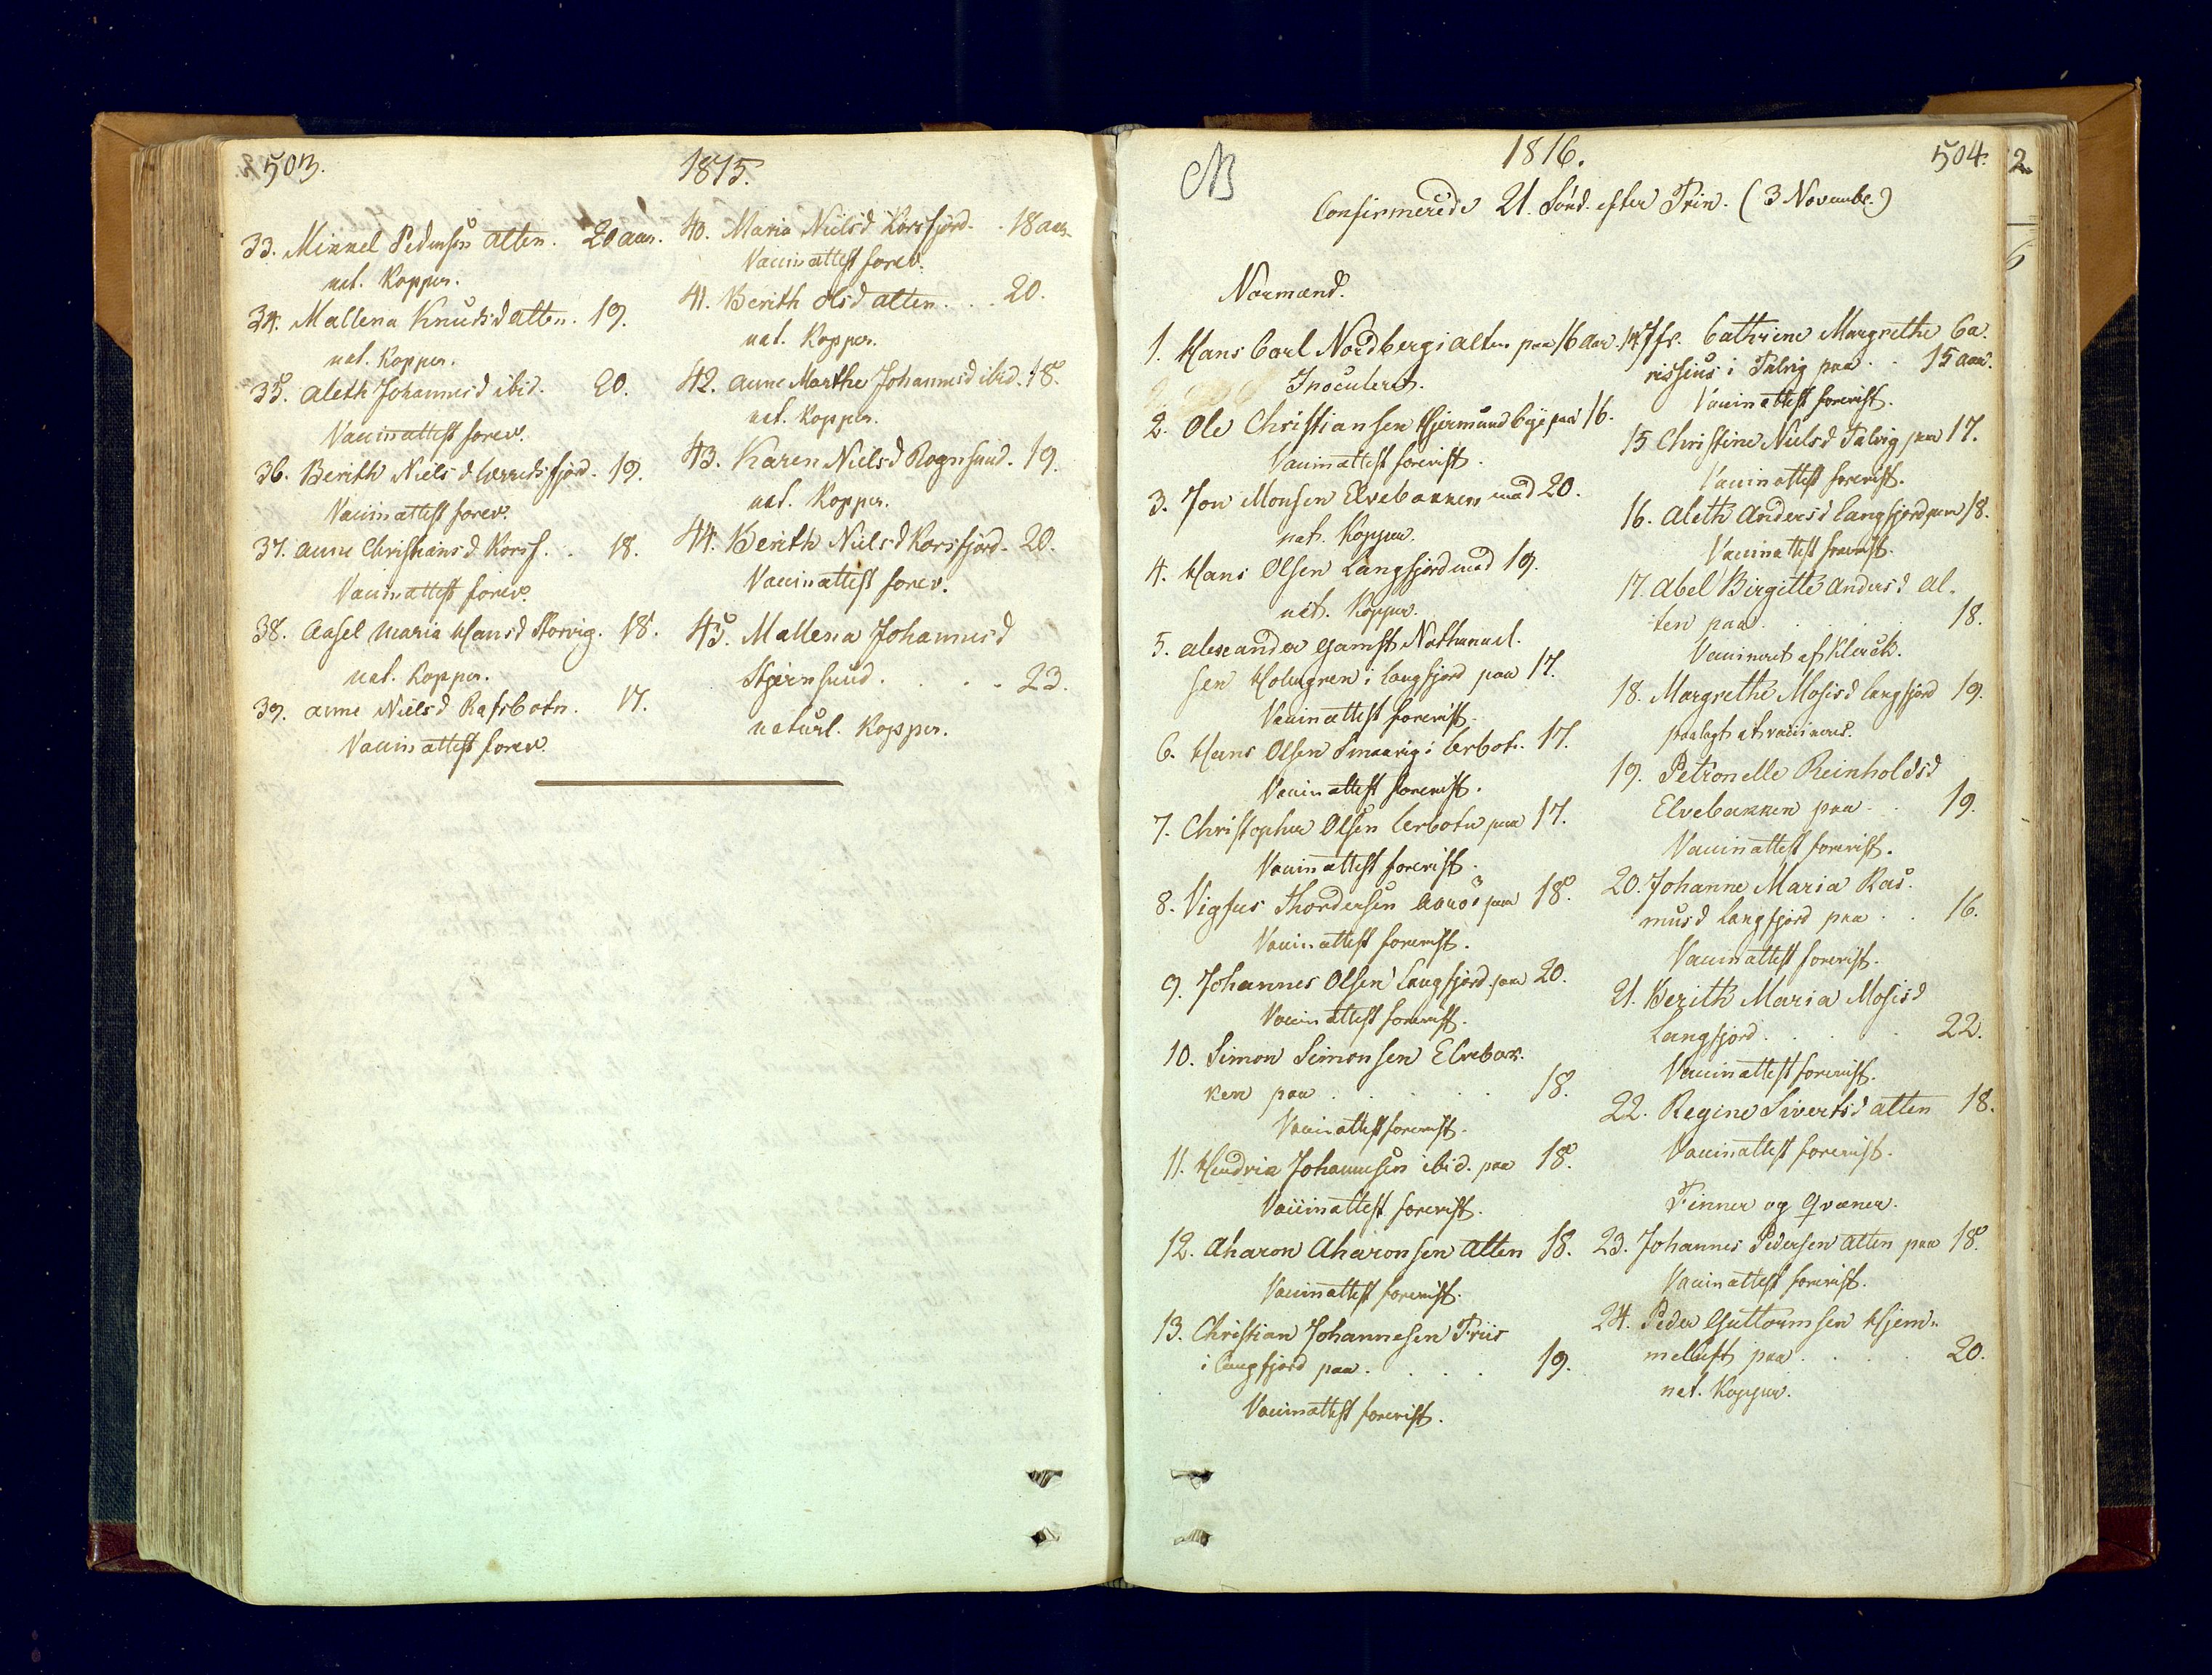 503.
1815.
33. Mikkel Pedersen Alten. 20 aar.
nat. Kopper.
34. Mallena Knudsd Alten. 19.
nat. Kopper.
35. Aleth Johannesd ibid. 20.
Vaccinattest forev.
36. Berith Nielsd Leeredsfjord. 19.
Vaccinattest forev.
37. Anne Christiansd Korsf. . 18.
Vaccinattest forev.
38. Aasel Maria Hansd Storvig. 18.
nat. Kopper.
39. Anne Nielsd Rafsbotn. 17.
Vaccinattest forev.
40. Maria Nielsd Korsfjord. . 18 aar
Vaccinattest forev.
41. Berith Olsd Alten. . . 20.
nat. Kopper.
42. Anne Marthe Johannesd ibid. 18.
nat. Kopper.
43. Karen Nielsd Rognsund. 19.
nat. Kopper.
44. Berith Nielsd Korsfjord. 20.
Vaccinattest forev.
45. Mallena Johannesd
Stjernsund. . . . 23.
naturl. Kopper.
NB
1816.
504.
Confirmerede 21. Sønd. efter Trin. (3 Novembr.)
Normænd.
1. Hans Carl Nordberg i Alten paa 16 aar.
Inoculeret.
2. Ole Christiansen Hjermundbye paa 16.
Vaccinattest forevist.
3. Jon Monsen Elvebakken med 20.
nat. Kopper.
4. Hans Olsen Langfjord med 19.
nat. Kopper.
5. Alexander Gamst Nathanael.
sen Holmgren i Langfjord paa 17.
Vaccinattest forevist.
6. Hans Olsen Smaavig i Lerbotn. 17.
Vaccinattest forevist.
7. Christopher Olsen Lerbotn paa 17.
Vaccinattest forevist.
8. Vigfus Thordersen Aarøe paa 18.
Vaccinattest forevist.
9. Johannes Olsen Langfjord paa 20.
Vaccinattest forevist.
10. Simon Simonsen Elvebak.
ken paa . . . . 18.
Vaccinattest forevist.
11. Hendrik Johannesen ibid. paa 18.
Vaccinattest forevist.
12. Aharon Aharonsen Alten 18.
Vaccinattest forevist.
13. Christian Johannesen Friis
i Langfjord paa . . . . 19.
Vaccinattest forevist.
14. Jfr. Cathrine Margrethe Ca.
rissius i Talvig paa . . 15 aar.
Vaccinattest forevist.
15 Christine Nielsd Talvig paa 17.
Vaccinattest forevist.
16. Aleth Andersd Langfjord paa 18.
Vaccinattest forevist.
17. Abel Birgitte Andersd Al.
ten paa . . . . 18.
Vaccineret af Klerck.
18. Margrethe Mosisd Langfjord 19.
paalagt at vaccineres.
19. Petronelle Reinholdsd
Elvebakken paa . . 19.
Vaccinattest forevist.
20. Johanne Maria Ras.
musd Langfjord paa . . 16.
Vaccinattest forevist.
21. Berith Maria Mosisd
Langfjord . . . . 22.
Vaccinattest forevist.
22. Regine Sivertsd Alten 18.
Vaccinattest forevist.
Finner og Qvæner.
23. Johannes Pedersen Alten paa 18.
Vaccinattest forevist.
24. Peder Guttormsen Hjem..
melluft paa . . . . 20.
nat. Kopper.
2.